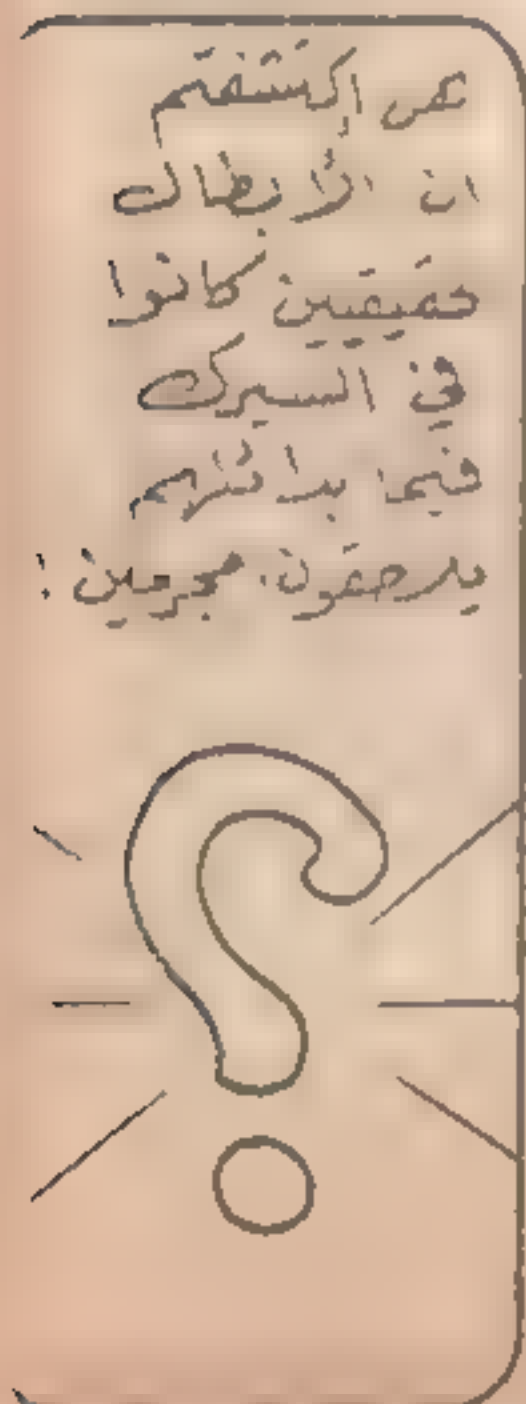 هل إكتشفتم
ان الأبطال
حقيقيين كانوا
في السيرك
فيما بدائلهم
يلاحقون مجرمين!